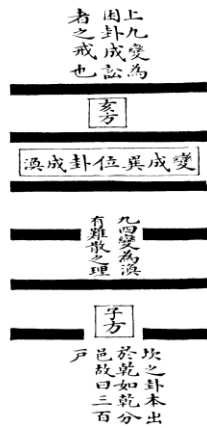 上九變為
困卦成訟
者之戒也
亥方
變成巽位卦成渙
九四變為渙
有離散之理
子方
坎之卦本出
於乾如乾分
邑故曰三百
戶